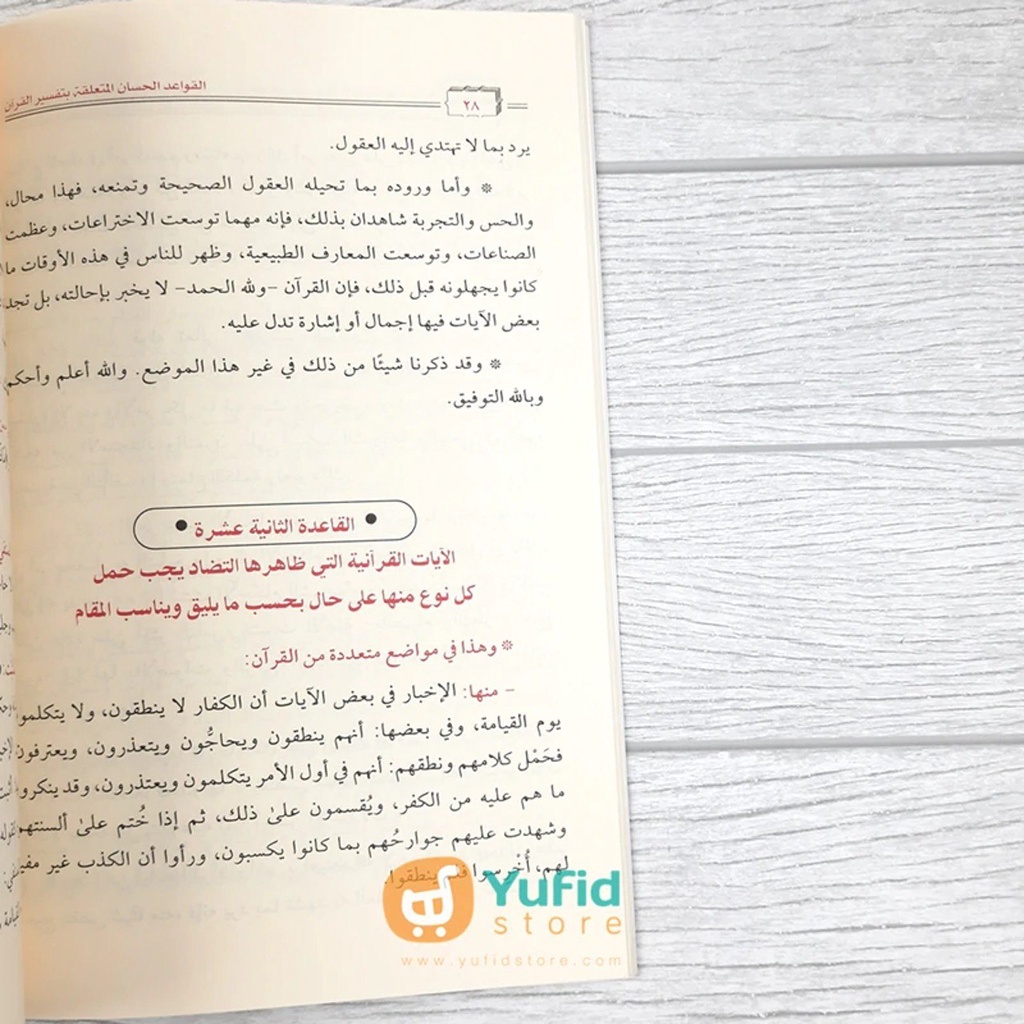 القواعد الحسان المتعلقة بتفسير القرآن
٢٨
يرد بما لا تهتدي إليه العقول.
* وأما وروده بما تحيله العقول الصحيحة وتمنعه، فهذا محال،
والحس والتجربة شاهدان بذلك، فإنه مهما توسعت الاختراعات، وعظمت
الصناعات، وتوسعت المعارف الطبيعية، وظهر للناس في هذه الأوقات ما
كانوا يجهلونه قبل ذلك، فإن القرآن -ولله الحمد- لا يخبر بإحالته، بل تجد
بعض الآيات فيها إجمال أو إشارة تدل عليه.
* وقد ذكرنا شيئًا من ذلك في غير هذا الموضع. والله أعلم وأحكم
وبالله التوفيق.
• القاعدة الثانية عشرة •
الآيات القرآنية التي ظاهرها التضاد يجب حمل
كل نوع منها على حال بحسب ما يليق ويناسب المقام
* وهذا في مواضع متعددة من القرآن:
- منها: الإخبار في بعض الآيات أن الكفار لا ينطقون، ولا يتكلمو
يوم القيامة، وفي بعضها: أنهم ينطقون ويحاجُّون ويتعذرون، ويعترفون
فحَمْل كلامهم ونطقهم: أنهم في أول الأمر يتكلمون ويعتذرون، وقد ينكرو
ما هم عليه من الكفر، ويُقسمون علىٰ ذلك، ثم إذا خُتم علىٰ ألسنتهم
وشهدت عليهم جوارحُهم بما كانوا يكسبون، ورأوا أن الكذب غير مفي
لهم، أُخْرسوا فلم ينطقوا.
Yufid
store
www.yufidstore.com